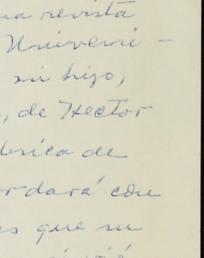 na revista
Universi-
mi hijo,
, de Hector
brica de
ordará con
s que su